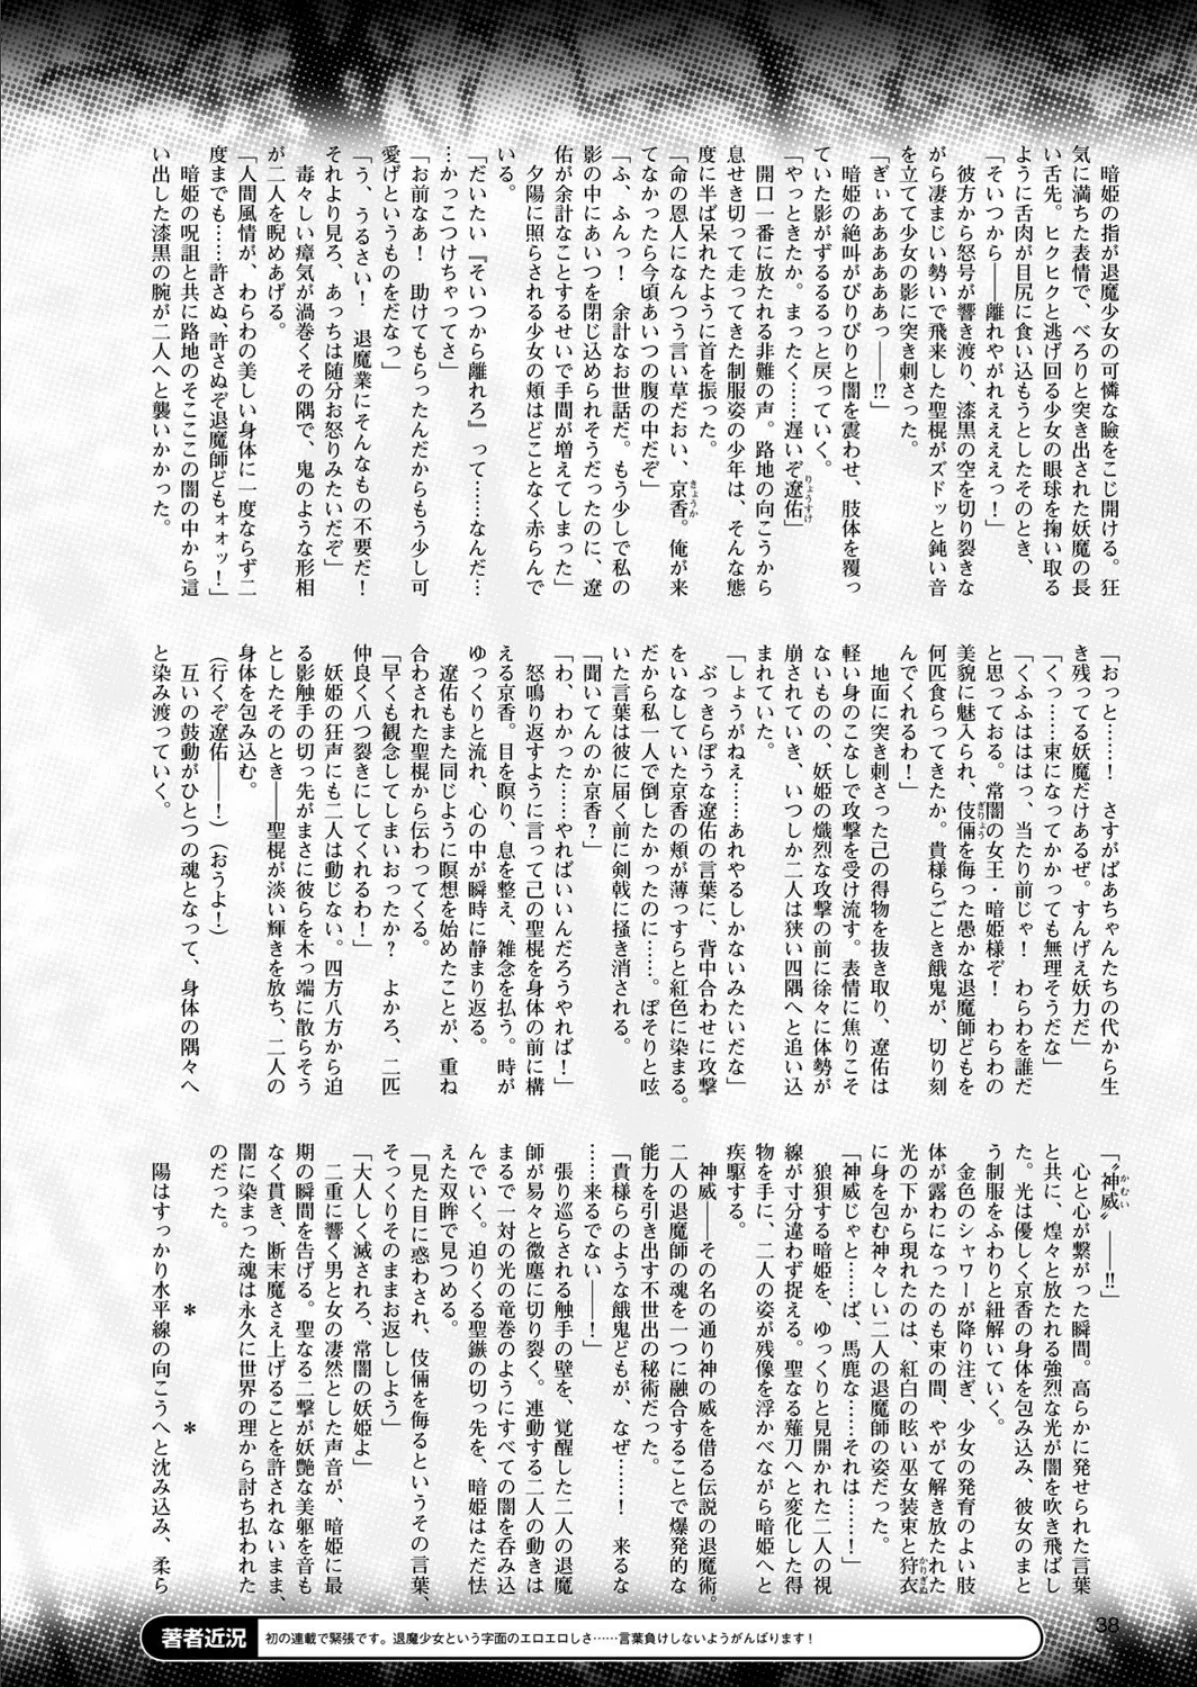 暗姫の指が退魔少女の可憐な瞼をこじ開ける。狂
気に満ちた表情で、べろりと突き出された妖魔の長
い舌先。ヒクヒクと逃げ回る少女の眼球を掬い取る
ように舌肉が目尻に食い込もうとしたそのとき、
「そいつから――離れやがれえええぇっ！」
　彼方から怒号が響き渡り、漆黒の空を切り裂きな
がら凄まじい勢いで飛来した聖棍がズドッと鈍い音
を立てて少女の影に突き刺さった。
「ぎぃああああああっ――!?」
　暗姫の絶叫がびりびりと闇を震わせ、肢体を覆っ
ていた影がずるるるっと戻っていく。
「やっときたか。まったく……遅いぞ遼佑」
りょうすけ
　開口一番に放たれる非難の声。路地の向こうから
息せき切って走ってきた制服姿の少年は、そんな態
度に半ば呆れたように首を振った。
「命の恩人になんつう言い草だおい、京香。俺が来
きょうか
てなかったら今頃あいつの腹の中だぞ」
「ふ、ふんっ！　余計なお世話だ。もう少しで私の
影の中にあいつを閉じ込められそうだったのに、遼
佑が余計なことするせいで手間が増えてしまった」
　夕陽に照らされる少女の頬はどことなく赤らんで
いる。
「だいたい『そいつから離れろ』って……なんだ…
…かっこつけちゃってさ」
「お前なあ！　助けてもらったんだからもう少し可
愛げというものをだなっ」
「う、うるさい！　退魔業にそんなもの不要だ！
それより見ろ、あっちは随分お怒りみたいだぞ」
　毒々しい瘴気が渦巻くその隅で、鬼のような形相
が二人を睨めあげる。
「人間風情が、わらわの美しい身体に一度ならず二
度までも……許さぬ、許さぬぞ退魔師どもォォッ！」
　暗姫の呪詛と共に路地のそこここの闇の中から這
い出した漆黒の腕が二人へと襲いかかった。
「おっと……！　さすがばあちゃんたちの代から生
き残ってる妖魔だけあるぜ。すんげえ妖力だ」
「くっ……束になってかかっても無理そうだな」
「くふふはははっ、当たり前じゃ！　わらわを誰だ
と思っておる。常闇の女王・暗姫様ぞ！　わらわの
美貌に魅入られ、伎倆を侮った愚かな退魔師どもを
ぎりょう
何匹食らってきたか。貴様らごとき餓鬼が、切り刻
んでくれるわ！」
　地面に突き刺さった己の得物を抜き取り、遼佑は
軽い身のこなしで攻撃を受け流す。表情に焦りこそ
ないものの、妖姫の熾烈な攻撃の前に徐々に体勢が
崩されていき、いつしか二人は狭い四隅へと追い込
まれていた。
「しょうがねえ……あれやるしかないみたいだな」
　ぶっきらぼうな遼佑の言葉に、背中合わせに攻撃
をいなしていた京香の頬が薄っすらと紅色に染まる。
だから私一人で倒したかったのに……。ぼそりと呟
いた言葉は彼に届く前に剣戟に掻き消される。
「聞いてんのか京香？」
「わ、わかった……やればいいんだろうやれば！」
　怒鳴り返すように言って己の聖棍を身体の前に構
える京香。目を瞑り、息を整え、雑念を払う。時が
ゆっくりと流れ、心の中が瞬時に静まり返る。
　遼佑もまた同じように瞑想を始めたことが、重ね
合わされた聖棍から伝わってくる。
「早くも観念してしまいおったか？　よかろ、二匹
仲良く八つ裂きにしてくれるわ！」
　妖姫の狂声にも二人は動じない。四方八方から迫
る影触手の切っ先がまさに彼らを木っ端に散らそう
としたそのとき――聖棍が淡い輝きを放ち、二人の
身体を包み込む。
（行くぞ遼佑――！）（おうよ！）
　互いの鼓動がひとつの魂となって、身体の隅々へ
と染み渡っていく。
「〝神威〟――!!」
かむい
　心と心が繋がった瞬間。高らかに発せられた言葉
と共に、煌々と放たれる強烈な光が闇を吹き飛ばし
た。光は優しく京香の身体を包み込み、彼女のまと
う制服をふわりと紐解いていく。
　金色のシャワーが降り注ぎ、少女の発育のよい肢
体が露わになったのも束の間、やがて解き放たれた
光の下から現れたのは、紅白の眩い巫女装束と狩衣
かりぎぬ
に身を包む神々しい二人の退魔師の姿だった。
「神威じゃと……ば、馬鹿な……それは……！」
　狼狽する暗姫を、ゆっくりと見開かれた二人の視
線が寸分違わず捉える。聖なる薙刀へと変化した得
物を手に、二人の姿が残像を浮かべながら暗姫へと
疾駆する。
　神威――その名の通り神の威を借る伝説の退魔術。
二人の退魔師の魂を一つに融合することで爆発的な
能力を引き出す不世出の秘術だった。
「貴様らのような餓鬼どもが、なぜ……！　来るな
……来るでない――！」
　張り巡らされる触手の壁を、覚醒した二人の退魔
師が易々と微塵に切り裂く。連動する二人の動きは
まるで一対の光の竜巻のようにすべての闇を呑み込
んでいく。迫りくる聖鏃の切っ先を、暗姫はただ怯
えた双眸で見つめる。
「見た目に惑わされ、伎倆を侮るというその言葉、
そっくりそのままお返ししよう」
「大人しく滅されろ、常闇の妖姫よ」
　二重に響く男と女の凄然とした声音が、暗姫に最
期の瞬間を告げる。聖なる二撃が妖艶な美躯を音も
なく貫き、断末魔さえ上げることを許されないまま、
闇に染まった魂は永久に世界の理から討ち払われた
のだった。
＊　　　＊
　陽はすっかり水平線の向こうへと沈み込み、柔ら
38
著者近況
初の連載で緊張です。退魔少女という字面のエロエロしさ……言葉負けしないようがんばります！